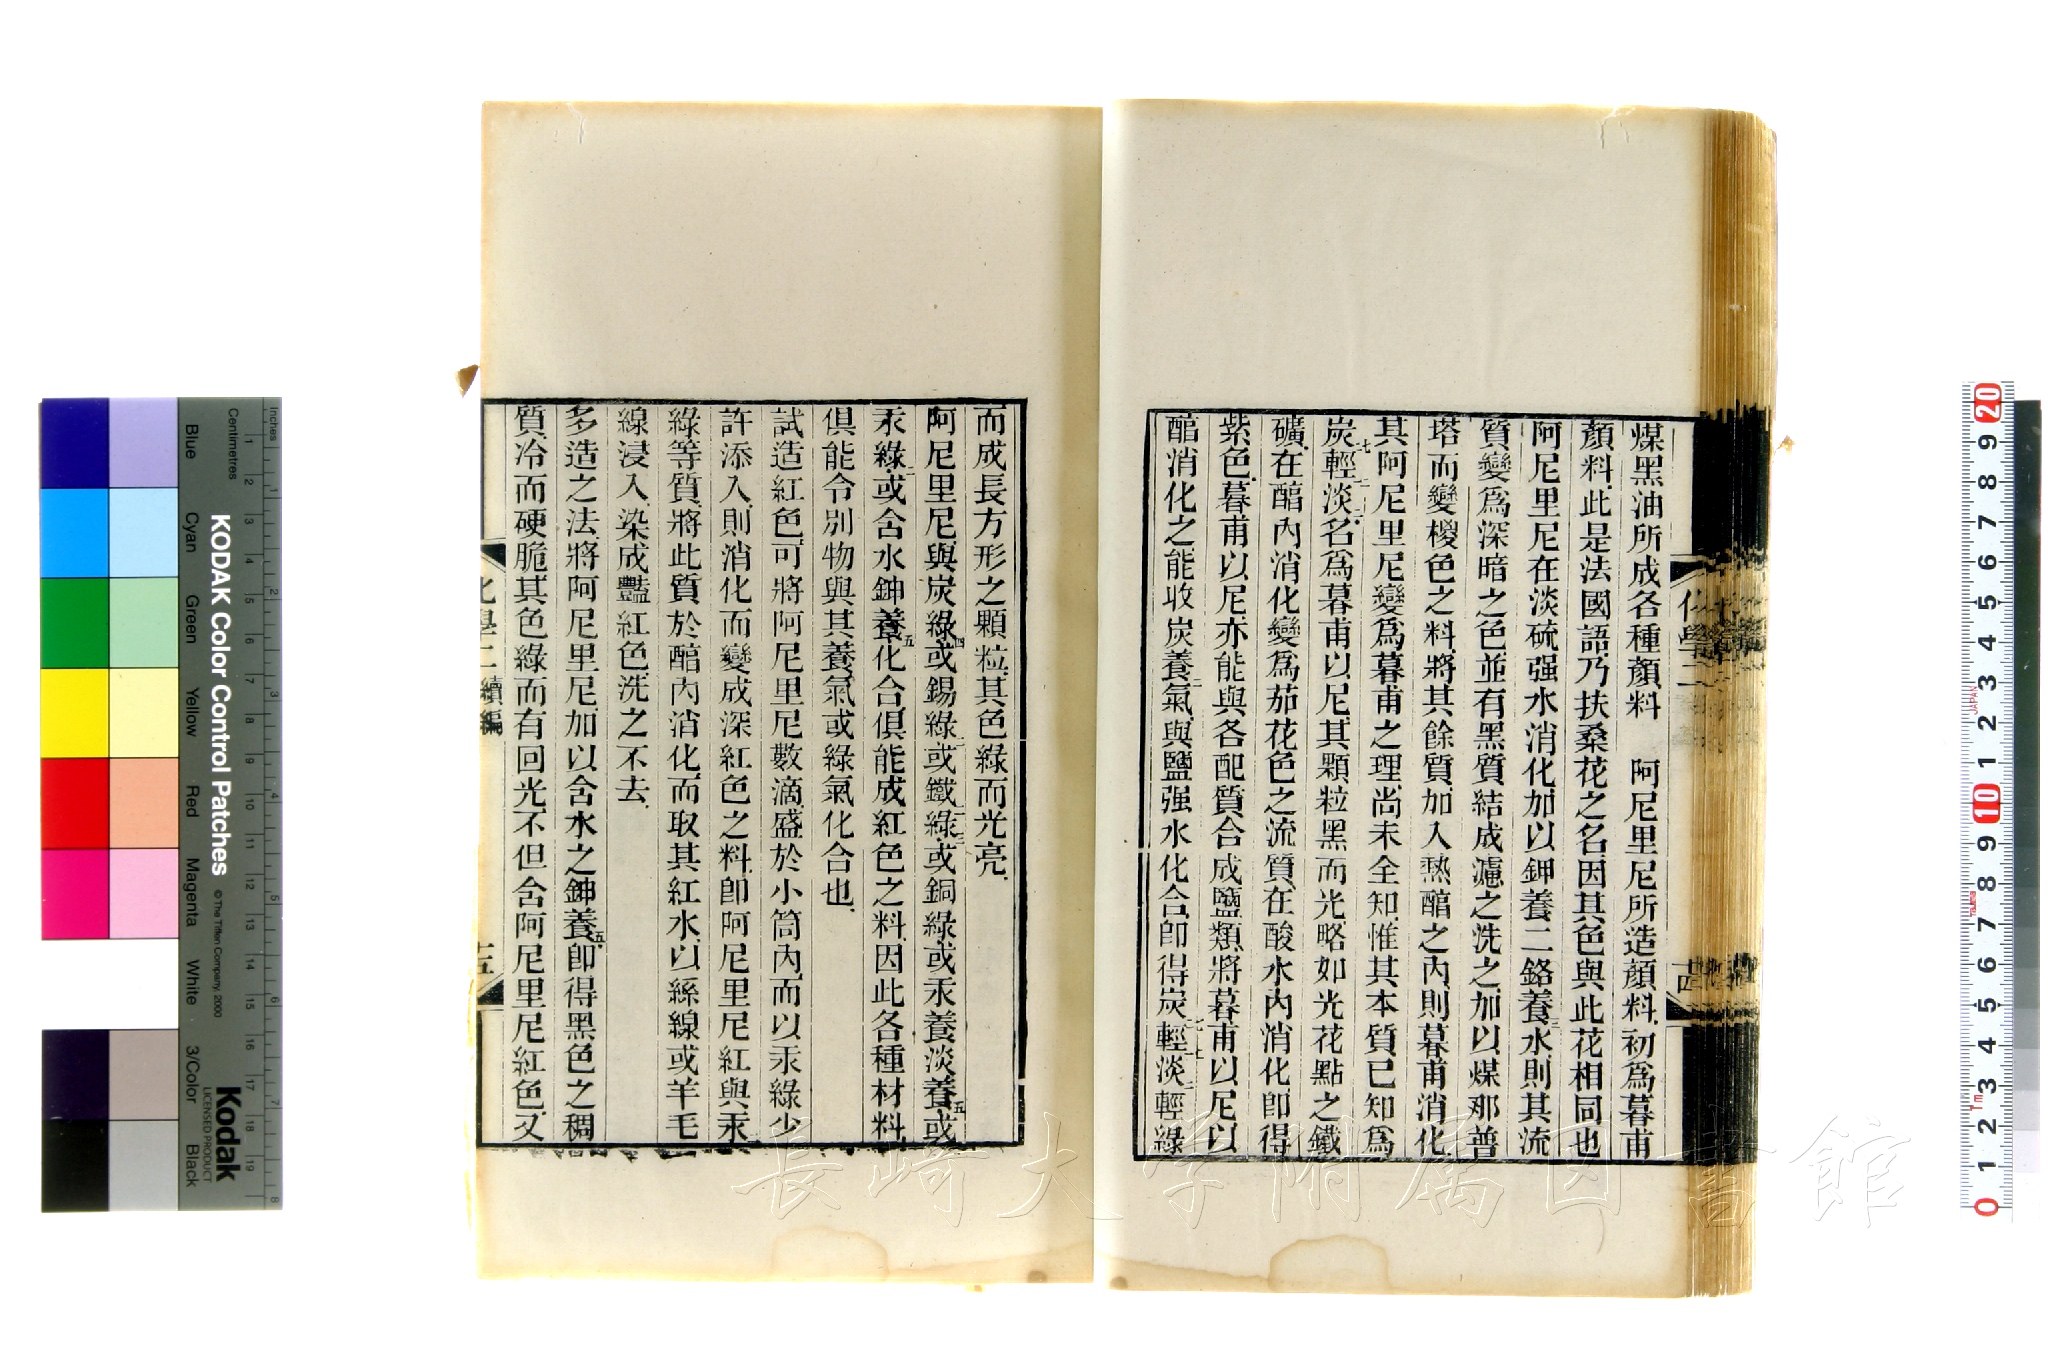 煤黑油所成各種顏料　阿尼里尼所造顏料初爲暮甫
顏料此是法國語乃扶桑花之名因其色與此花相同也
阿尼里尼在淡硫强水消化加以鉮養二鉻養三水則其流
質變爲深暗之色並有黑質結成濾之洗之加以煤那普
塔而變椶色之料將其餘質加入熱醕之內則暮甫消化
其阿尼里尼變爲暮甫之理尚未全知惟其本質已知爲
炭輕淡名爲暮甫以尼其顆粒黑而光略如光花點之鐵
礦在醕內消化變爲茄花色之流質在酸水內消化即得
紫色暮甫以尼亦能與各配質合成鹽類將暮甫以尼以
醕消化之能收炭養二氣與鹽强水化合即得炭輕淡輕綠
化學二
十四
而成長方形之顆粒其色綠而光亮
阿尼里尼與炭綠四或錫綠二或鐵二綠三或銅綠或汞養淡養五或
汞綠二或含水鉮養五化合俱能成紅色之料因此各種材料
俱能令別物與其養氣或綠氣化合也
試造紅色可將阿尼里尼數滴盛於小筒內而以汞綠少
許添入則消化而變成深紅色之料即阿尼里尼紅與汞
綠等質將此質於醕內消化而取其紅水以絲線或羊毛
線浸入染成豔紅色洗之不去
多造之法將阿尼里尼加以含水之鉮養五即得黑色之稠
質冷而硬脆其色綠而有回光不但含阿尼里尼紅色又
化學二續編
十五
Inches
Centimetres
KODAK Color Control Patches
© The Tiffen Company, 2000
Kodak
LICENSED PRODUCT
Blue
Cyan
Green
Yellow
Red
Magenta
White
3/Color
Black
長崎大学附属図書館